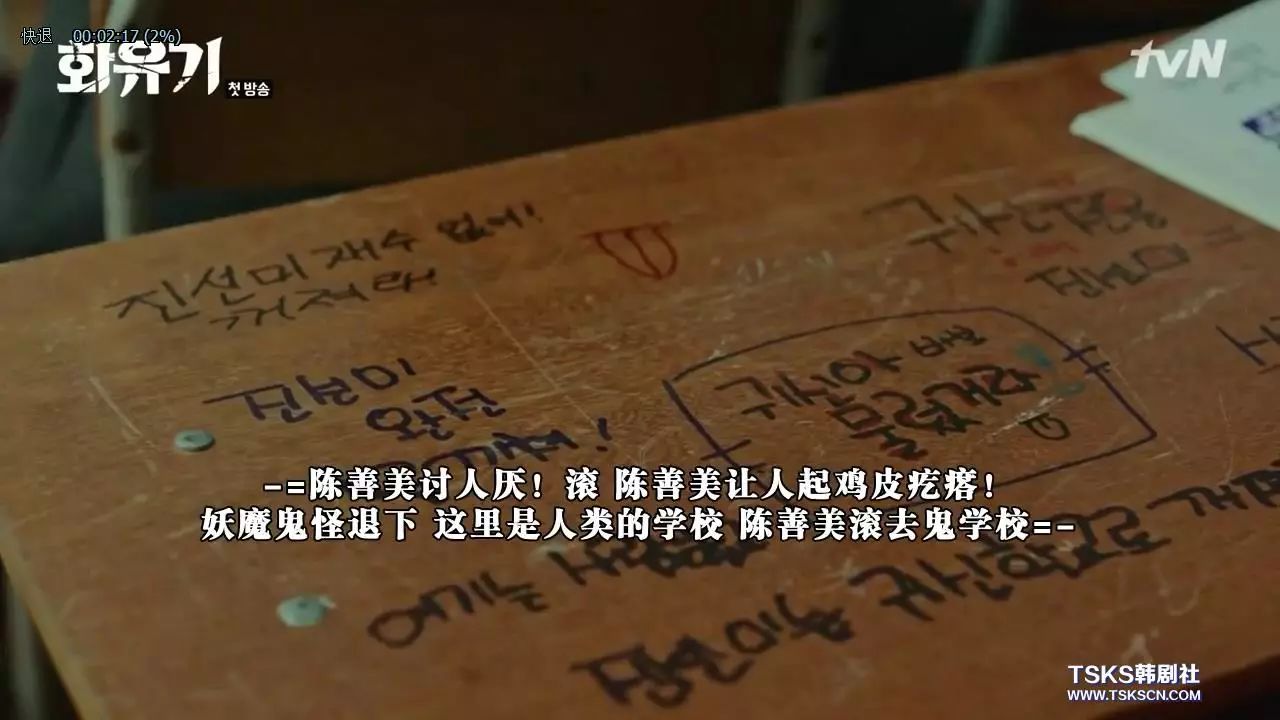 快退 00:02:17 (2%)
화유기 첫방송
tvN
진선미 재수 없어!
꺼져라
진선미
귀신아
물렀거라
-=陈善美讨人厌！滚 陈善美让人起鸡皮疙瘩！
妖魔鬼怪退下 这里是人类的学校 陈善美滚去鬼学校=-
여기는 사람
진선미는 귀신학교로
TSKS韩剧社
WWW.TSKSCN.COM